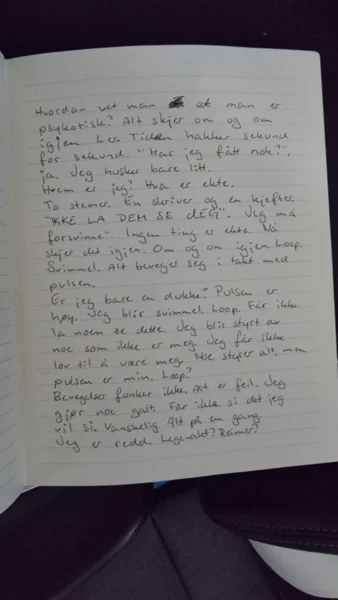 Hvordan vet man at man er
psykotisk? Alt skjer om og om
igjen. Ler. Tiden hakker sekund
for sekund. "Har jeg fått nok?",
ja. Jeg husker bare litt.
Hvem er jeg? Hva er ekte.
To stemer. En skriver og en kjefter.
"IKKE LA DEM SE dEG". "Jeg må
forsvinne". Ingen ting er ekte. Nå
skjer det igjen. Om og om igjen. Loop.
Svimmel. Alt beveger seg i takt med
pulsen.
Er jeg bare en dukke? Pulsen er
høy. Jeg blir svimmel. Loop. Får ikke
la noen se dette. Jeg blir styrt av
noe som ikke er meg. Jeg får ikke
lov til å være meg. Noe styrer alt, men
pulsen er min. Loop?
Bevegelser funker ikke. Alt er feil. Jeg
gjør noe galt. Får ikke si det jeg
vil si. Vanskelig. Alt på en gang.
Jeg er redd. Legevakt?